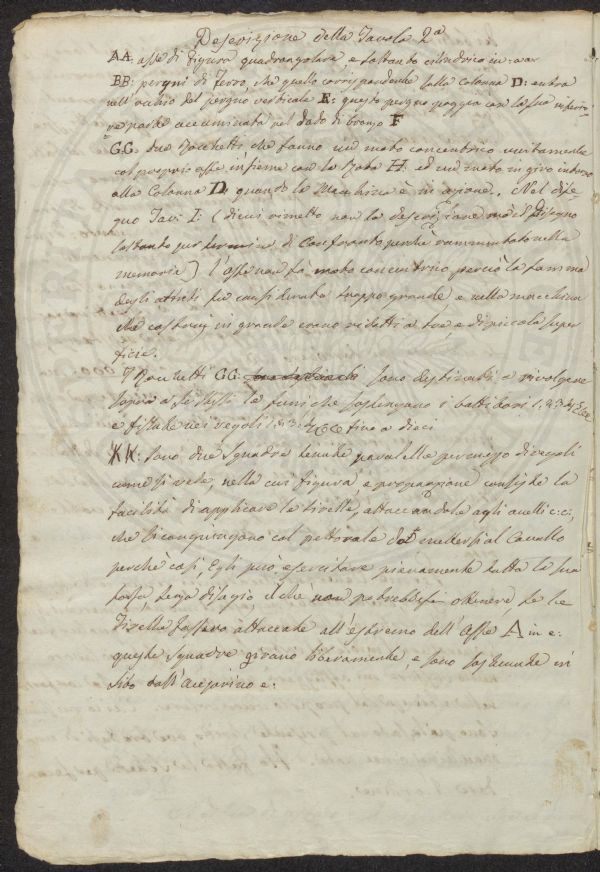 Descrizione della Tavola 2ª
AA: asse di figura quadrangolare, e soltanto cilindrico in: a: a:
BB: pergni di ferro, che quello corrispondente sulla colonna D: entra
nell'occhio del pergno verticale E: questo pergno poggia con la sua inferio-
re parte accuminata nel dado di bronzo F
GG: due Rocchetti che fanno un moto concentrico unitamente
col proprio asse, insieme con la Rota H: ed un moto in giro intorno
alla Colonna D, quando la Macchina è in azione. Nel dise-
gno Tav: I: ( di cui rimetto non la descrizione mà il Disegno
soltanto per termine di Confronto perchè rammentato nella
memoria) l'asse non fà moto concentrico, perciò la somma
degli attriti fu considerata troppo grande, e nella macchina
che costruij in grande erano ridotti a tre e di piccola super
ficie.
I Rocchetti GG: sono destinati a rivolgere
sopra a se stessi le funi che sostengono i battidori 1. 2. 3. 4. &cc
e fissate nei regoli 1. 2. 3. 4 &cc fino a dieci
KK: sono due squadre tenute paralelle per mezzo di regoli
come si vede, nella cui figura, e proporzione consiste la
facilità di applicare le tirelle, attaccandole agli anelli c: c:,
che si congiungono col pettorale da mettersi al Cavallo
perchè così, Egli può esercitare pienamente tutta la sua
forza, senza disagio, il chè non potrebbesi ottenere, se le
Tirelle fossero attaccate all'estremo dell'Asse A in e:
queste squadre girano liberamente, e sono sostenute in
sito dall'acciarino e.